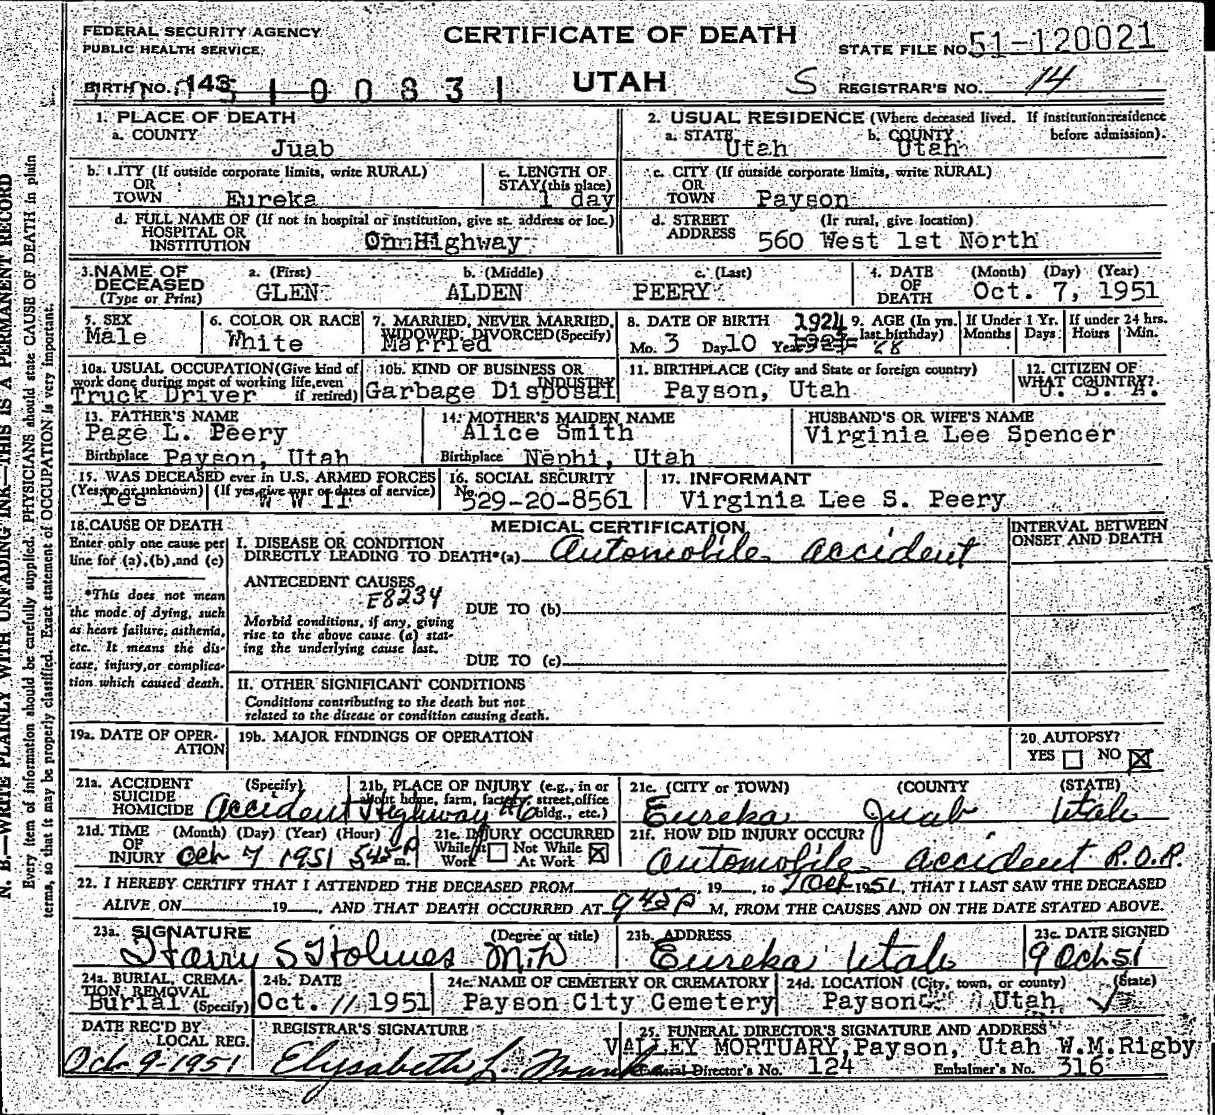 FEDERAL SECURITY AGENCY
PUBLIC HEALTH SERVICE
CERTIFICATE OF DEATH
STATE FILE NO. 51-120021
BIRTH NO. 143
UTAH
S
REGISTRAR'S NO. 14
1. PLACE OF DEATH
a. COUNTY
Juab
2. USUAL RESIDENCE (Where deceased lived. If institution: residence before admission).
a. STATE Utah
b. COUNTY Utah
b. CITY (If outside corporate limits, write RURAL)
OR
TOWN Eureka
c. LENGTH OF
STAY (this place)
1 day
c. CITY (If outside corporate limits, write RURAL)
OR
TOWN Payson
d. FULL NAME OF (If not in hospital or institution, give st. address or loc.)
HOSPITAL OR
INSTITUTION On Highway
d. STREET (If rural, give location)
ADDRESS 560 West 1st North
3. NAME OF
DECEASED
(Type or Print)
a. (First) b. (Middle) c. (Last)
GLEN ALDEN PEERY
4. DATE
OF
DEATH
(Month) (Day) (Year)
Oct. 7, 1951
5. SEX
Male
6. COLOR OR RACE
White
7. MARRIED, NEVER MARRIED,
WIDOWED, DIVORCED (Specify)
Married
8. DATE OF BIRTH 1924
Mo. 3 Day 10 Year
9. AGE (In yrs.
last birthday)
If Under 1 Yr.
Months Days
If under 24 hrs.
Hours Min.
10a. USUAL OCCUPATION (Give kind of
work done during most of working life, even
if retired)
Truck Driver
10b. KIND OF BUSINESS OR
INDUSTRY
Garbage Disposal
11. BIRTHPLACE (City and State or foreign country)
Payson, Utah
12. CITIZEN OF
WHAT COUNTRY?
U. S. A.
13. FATHER'S NAME
Page L. Peery
Birthplace Payson, Utah
14. MOTHER'S MAIDEN NAME
Alice Smith
Birthplace Nephi, Utah
HUSBAND'S OR WIFE'S NAME
Virginia Lee Spencer
15. WAS DECEASED ever in U.S. ARMED FORCES
(Yes, no or unknown) (If yes, give war or dates of service)
Yes W W II
16. SOCIAL SECURITY
No. 529-20-8561
17. INFORMANT
Virginia Lee S. Peery
18. CAUSE OF DEATH
Enter only one cause per
line for (a), (b), and (c)
*This does not mean
the mode of dying, such
as heart failure, asthenia,
etc. It means the dis-
ease, injury, or complica-
tion which caused death.
MEDICAL CERTIFICATION
INTERVAL BETWEEN
ONSET AND DEATH
I. DISEASE OR CONDITION
DIRECTLY LEADING TO DEATH*(a) Automobile accident
ANTECEDENT CAUSES
E8234
DUE TO (b)
Morbid conditions, if any, giving
rise to the above cause (a) stat-
ing the underlying cause last.
DUE TO (c)
II. OTHER SIGNIFICANT CONDITIONS
Conditions contributing to the death but not
related to the disease or condition causing death.
19a. DATE OF OPER-
ATION
19b. MAJOR FINDINGS OF OPERATION
20 AUTOPSY?
YES NO
21a. ACCIDENT (Specify)
SUICIDE
HOMICIDE Accident
21b. PLACE OF INJURY (e.g., in or
about home, farm, factory, street, office
bldg., etc.)
Highway #6
21c. (CITY OR TOWN) (COUNTY) (STATE)
Eureka Juab Utah
21d. TIME (Month) (Day) (Year) (Hour)
OF
INJURY Oct 7 1951 545 P m.
21e. INJURY OCCURRED
While at Not While
Work At Work
21f. HOW DID INJURY OCCUR?
Automobile accident R.O.R.
22. I HEREBY CERTIFY THAT I ATTENDED THE DECEASED FROM 19 , to 7 Oct 1951, THAT I LAST SAW THE DECEASED
ALIVE ON 19 , AND THAT DEATH OCCURRED AT 945 P M, FROM THE CAUSES AND ON THE DATE STATED ABOVE.
23a. SIGNATURE (Degree or title)
Harry S Holmes M.D
23b. ADDRESS
Eureka Utah
23c. DATE SIGNED
9 Oct 51
24a. BURIAL, CREMA-
TION, REMOVAL
Burial (Specify)
24b. DATE
Oct. 11 1951
24c. NAME OF CEMETERY OR CREMATORY
Payson City Cemetery
24d. LOCATION (City, town, or county) (State)
Payson Utah
DATE REC'D BY
LOCAL REG.
Oct-9-1951
REGISTRAR'S SIGNATURE
Elysabeth L.
25. FUNERAL DIRECTOR'S SIGNATURE AND ADDRESS
VALLEY MORTUARY, Payson, Utah W.M.Rigby
Funeral Director's No. 124 Embalmer's No. 316
N. B.—WRITE PLAINLY WITH UNFADING INK—THIS IS A PERMANENT RECORD
Every item of information should be carefully supplied. PHYSICIANS should state CAUSE OF DEATH in plain
terms, so that it may be properly classified. Exact statement of OCCUPATION is very important.